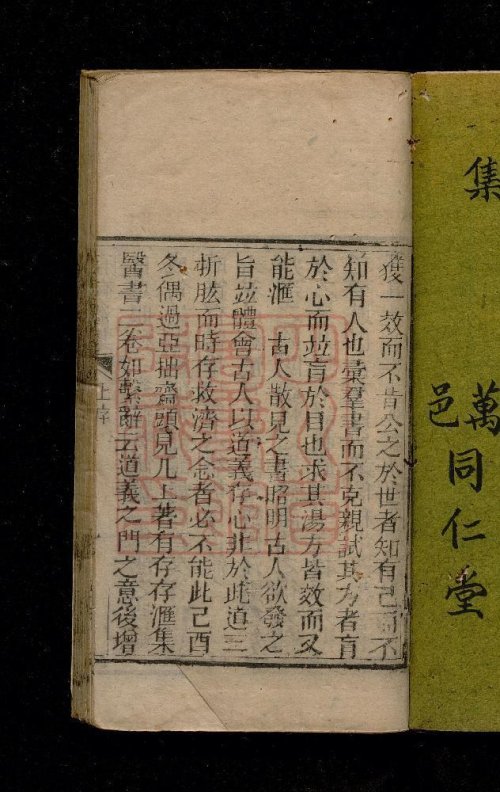 獲一效而不肯公之於世者知有己而不
知有人也彙羣書而不克親試其方者肓
於心而並肓於目也求其湯方皆效而又
能滙 古人散見之書昭明古人欲發之
旨並體會古人以道義存心非於此道三
折肱而時存救濟之念者必不能此己酉
冬偶過亞拙齋頭見几上著有存存滙集
醫書二卷如繫辭云道義之門之意後增
上序
集
萬邑
同仁堂